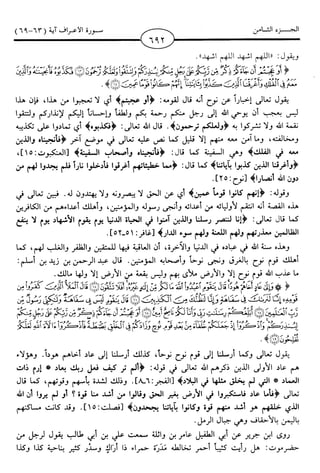 الجـــزء الثـــامن
سـورة الأعـراف آية (٦٣-٦٩)
٦٩٢
ويقول: «اللهم اشهد اللهم اشهد».
﴿ أَوَعَجِبْتُمْ أَن جَاءَكُمْ ذِكْرٌ مِّن رَّبِّكُمْ عَلَىٰ رَجُلٍ مِّنكُمْ لِيُنذِرَكُمْ وَلِتَتَّقُوا وَلَعَلَّكُمْ تُرْحَمُونَ ۝ فَكَذَّبُوهُ فَأَنجَيْنَاهُ وَالَّذِينَ
مَعَهُ فِي الْفُلْكِ وَأَغْرَقْنَا الَّذِينَ كَذَّبُوا بِآيَاتِنَا إِنَّهُمْ كَانُوا قَوْمًا عَمِينَ ۝ ﴾
يقول تعالى إخباراً عن نوح أنه قال لقومه: ﴿أو عجبتم﴾ أي لا تعجبوا من هذا، فإن هذا
ليس بعجب أن يوحي الله إلى رجل منكم رحمة بكم ولطفاً وإحساناً إليكم لإنذاركم ولتتقوا
نقمة الله ولا تشركوا به ﴿ولعلكم ترحمون﴾. قال الله تعالى: ﴿فكذبوه﴾ أي تمادوا على تكذيبه
ومخالفته، وما آمن معه منهم إلا قليل كما نص عليه تعالى في موضع آخر ﴿فأنجيناه والذين
معه في الفلك﴾ وهي السفينة كما قال: ﴿فأنجيناه وأصحاب السفينة﴾ [العنكبوت: ١٥]،
﴿وأغرقنا الذين كذبوا بآياتنا﴾ كما قال: ﴿مما خطيئاتهم أغرقوا فأدخلوا ناراً فلم يجدوا لهم من
دون الله أنصارا﴾ [نوح: ٢٥].
وقوله: ﴿إنهم كانوا قوماً عمين﴾ أي عن الحق لا يبصرونه ولا يهتدون له. فبين تعالى في
هذه القصة أنه انتقم لأوليائه من أعدائه وأنجى رسوله والمؤمنين، وأهلك أعداءهم من الكافرين
كما قال تعالى: ﴿إنا لننصر رسلنا والذين آمنوا في الحياة الدنيا ويوم يقوم الأشهاد يوم لا ينفع
الظالمين معذرتهم ولهم اللعنة ولهم سوء الدار﴾ [غافر: ٥١ـ٥٢].
وهذه سنة الله في عباده في الدنيا والآخرة، أن العاقبة فيها للمتقين والظفر والغلب لهم، كما
أهلك قوم نوح بالغرق ونجى نوحاً وأصحابه المؤمنين. قال عبد الرحمن بن زيد بن أسلم:
ما عذب الله قوم نوح إلا والأرض ملأى بهم وليس بقعة من الأرض إلا ولها مالك.
يقول تعالى وكما أرسلنا إلى قوم نوح نوحاً، كذلك أرسلنا إلى عاد أخاهم هوداً. وهؤلاء
هم عاد الأولى الذين ذكرهم الله تعالى في قوله: ﴿ألم تر كيف فعل ربك بعاد * إرم ذات
العماد * التي لم يخلق مثلها في البلاد﴾ [الفجر: ٦ـ٨]. وذلك لشدة بأسهم وقوتهم، كما قال
تعالى ﴿فأما عاد فاستكبروا في الأرض بغير الحق وقالوا من أشد منا قوة؟ أو لم يروا أن الله
الذي خلقهم هو أشد منهم قوة وكانوا بآياتنا يجحدون﴾ [فصلت: ١٥]. وقد كانت مساكنهم
باليمن بالأحقاف وهي جبال الرمل.
روى ابن جرير عن أبي الطفيل عامر بن واثلة سمعت علي بن أبي طالب يقول لرجل من
حضرموت: هل رأيت كثيباً أحمر تخالطه مدرة حمراء ذا أراك وسدر كثير بناحية كذا وكذا